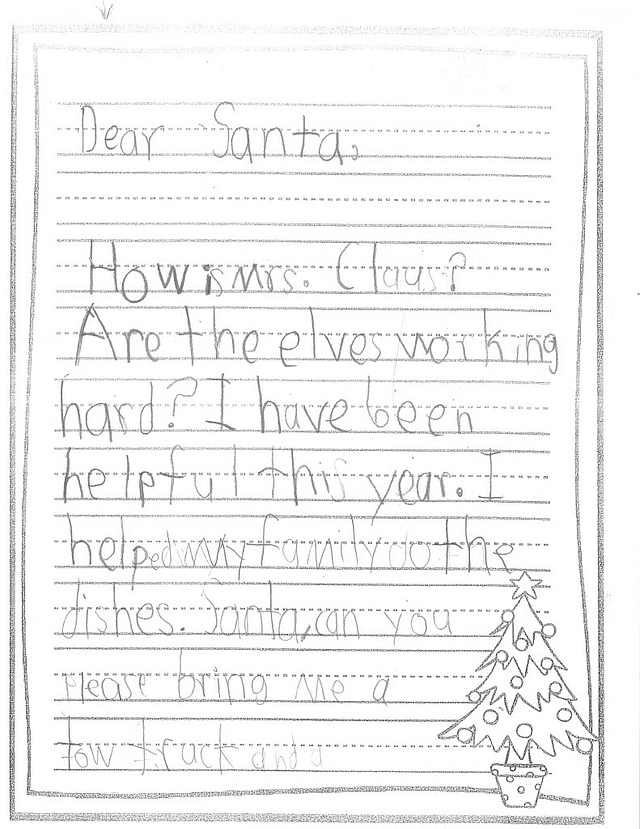 Dear Santa,
How is Mrs. Claus?
Are the elves working
hard? I have been
helpful this year. I
helped my family do the
dishes. Santa, can you
please bring me a
tow truck and a